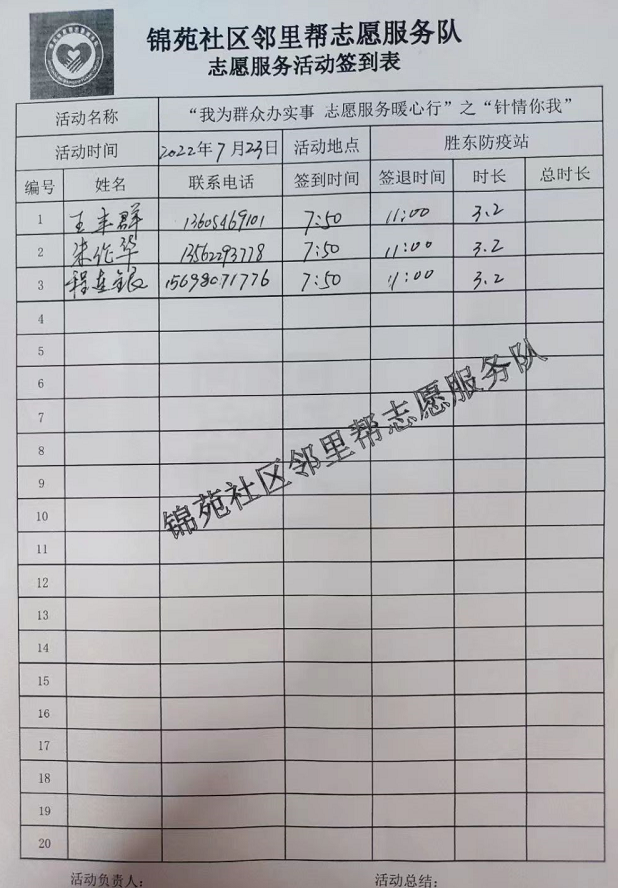 锦苑社区邻里帮志愿服务队
志愿服务活动签到表
活动名称 “我为群众办实事 志愿服务暖心行”之“针情你我”
活动时间 2022年7月23日 活动地点 胜东防疫站
编号 姓名 联系电话 签到时间 签退时间 时长 总时长
1 王丰群 13605469101 7:50 11:00 3.2
2 朱作华 13562293778 7:50 11:00 3.2
3 程连银 15698071776 7:50 11:00 3.2
4
5
6
7
8
9
10
11
12
13
14
15
16
17
18
19
20
锦苑社区邻里帮志愿服务队
活动负责人: 活动总结: